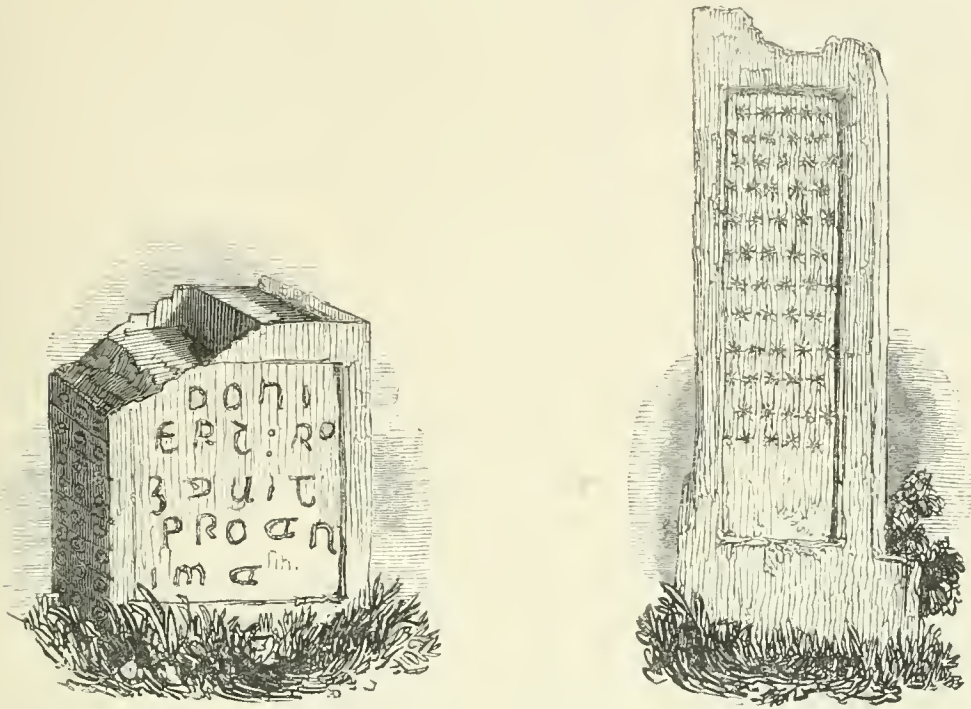 DONI
ERT:RO
GAUIT
PROAN
IMA